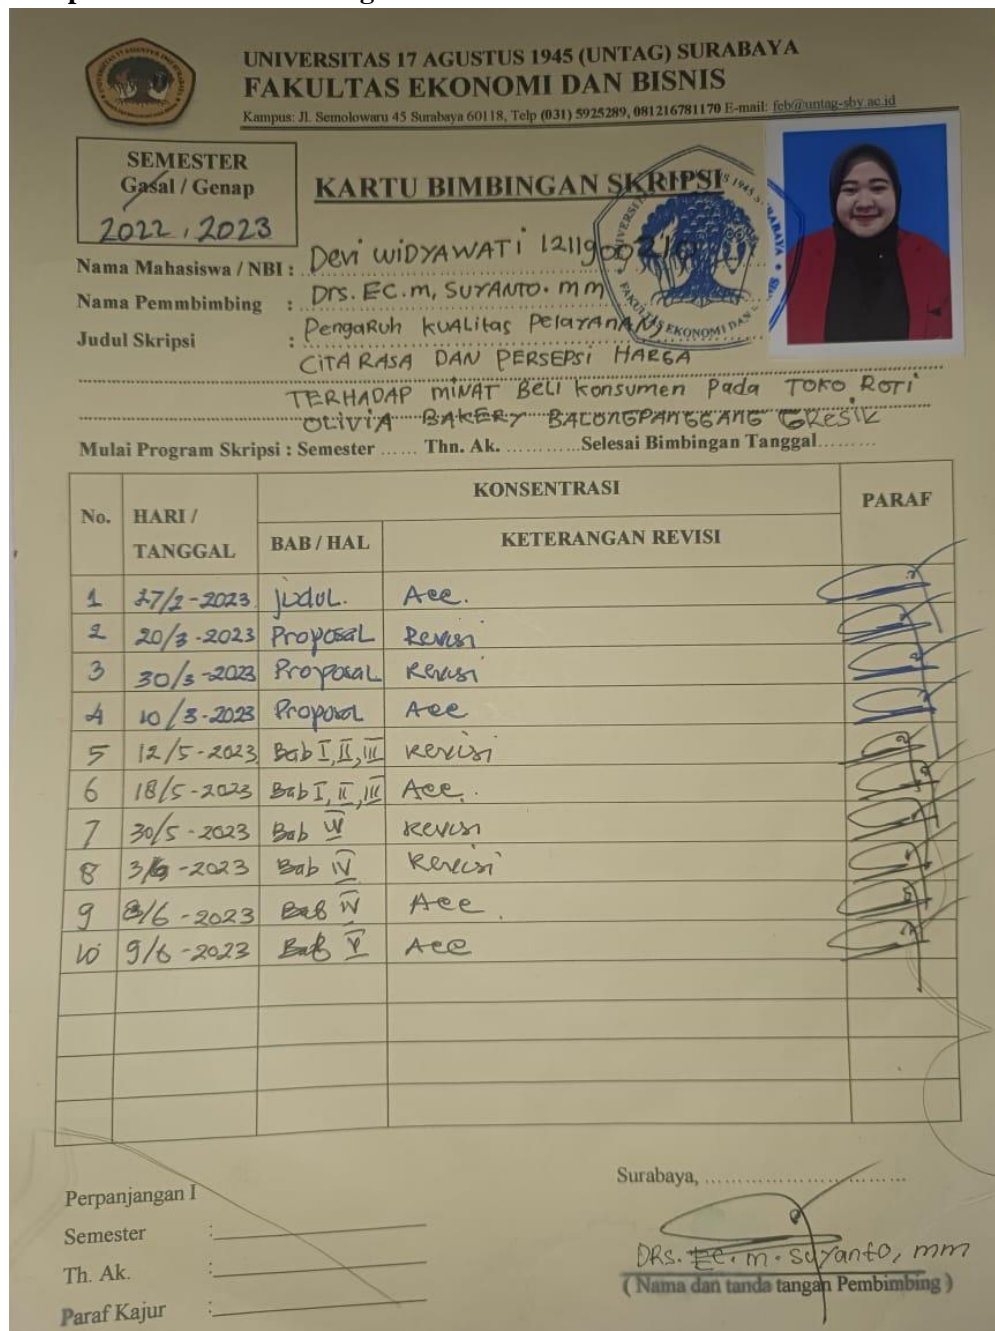 UNIVERSITAS 17 AGUSTUS 1945 (UNTAG) SURABAYA
FAKULTAS EKONOMI DAN BISNIS
Kampus: Jl. Semolowaru 45 Surabaya 60118, Telp (031) 5925289, 081216781170 E-mail: feb@untag-sby.ac.id
SEMESTER
Gasal / Genap
2022, 2023
KARTU BIMBINGAN SKRIPSI
Nama Mahasiswa / NBI : Devi WIDYAWATI
Nama Pemmbimbing : Drs. EC. M, SUYANTO. MM
Judul Skripsi : Pengaruh KUALitas PelaYANAN,
CITA RASA DAN PERSEPSI HARGA
TERHADAP MINAT Beli konsumen Pada TOKO ROTI
OLIVIA BAKERY BALONGPANGGANG GRESIK
Mulai Program Skripsi : Semester ...... Thn. Ak. ............Selesai Bimbingan Tanggal.........
No. HARI / TANGGAL KONSENTRASI PARAF
BAB / HAL KETERANGAN REVISI
1 27/2-2023 judul. Acc.
2 20/3-2023 Proposal Revisi
3 30/3-2023 Proposal Revisi
4 10/3-2023 Proposal Acc
5 12/5-2023 Bab I, II, III Revisi
6 18/5-2023 Bab I, II, III Acc.
7 30/5-2023 Bab IV Revisi
8 3/6-2023 Bab IV Revisi
9 8/6-2023 Bab IV Acc
10 9/6-2023 Bab V Acc
Perpanjangan I
Semester :
Th. Ak. :
Paraf Kajur :
Surabaya, ..............................
DRS. EC. M. Suyanto, MM
( Nama dan tanda tangan Pembimbing )